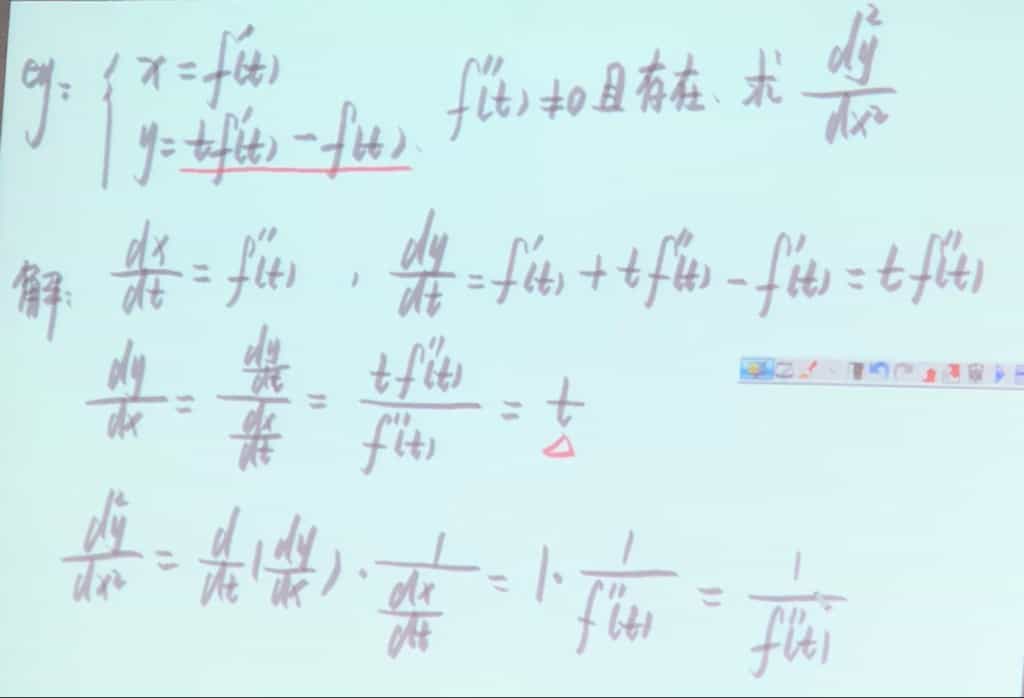 eg: { x = f'(t)
y = tf'(t) - f(t). f''(t) ≠ 0 且存在、求 d²y/dx²
解: dx/dt = f''(t) , dy/dt = f'(t) + tf''(t) - f'(t) = tf''(t)
dy/dx = (dy/dt)/(dx/dt) = tf''(t)/f''(t) = t
d²y/dx² = d/dt(dy/dx) · 1/(dx/dt) = 1 · 1/f''(t) = 1/f''(t)